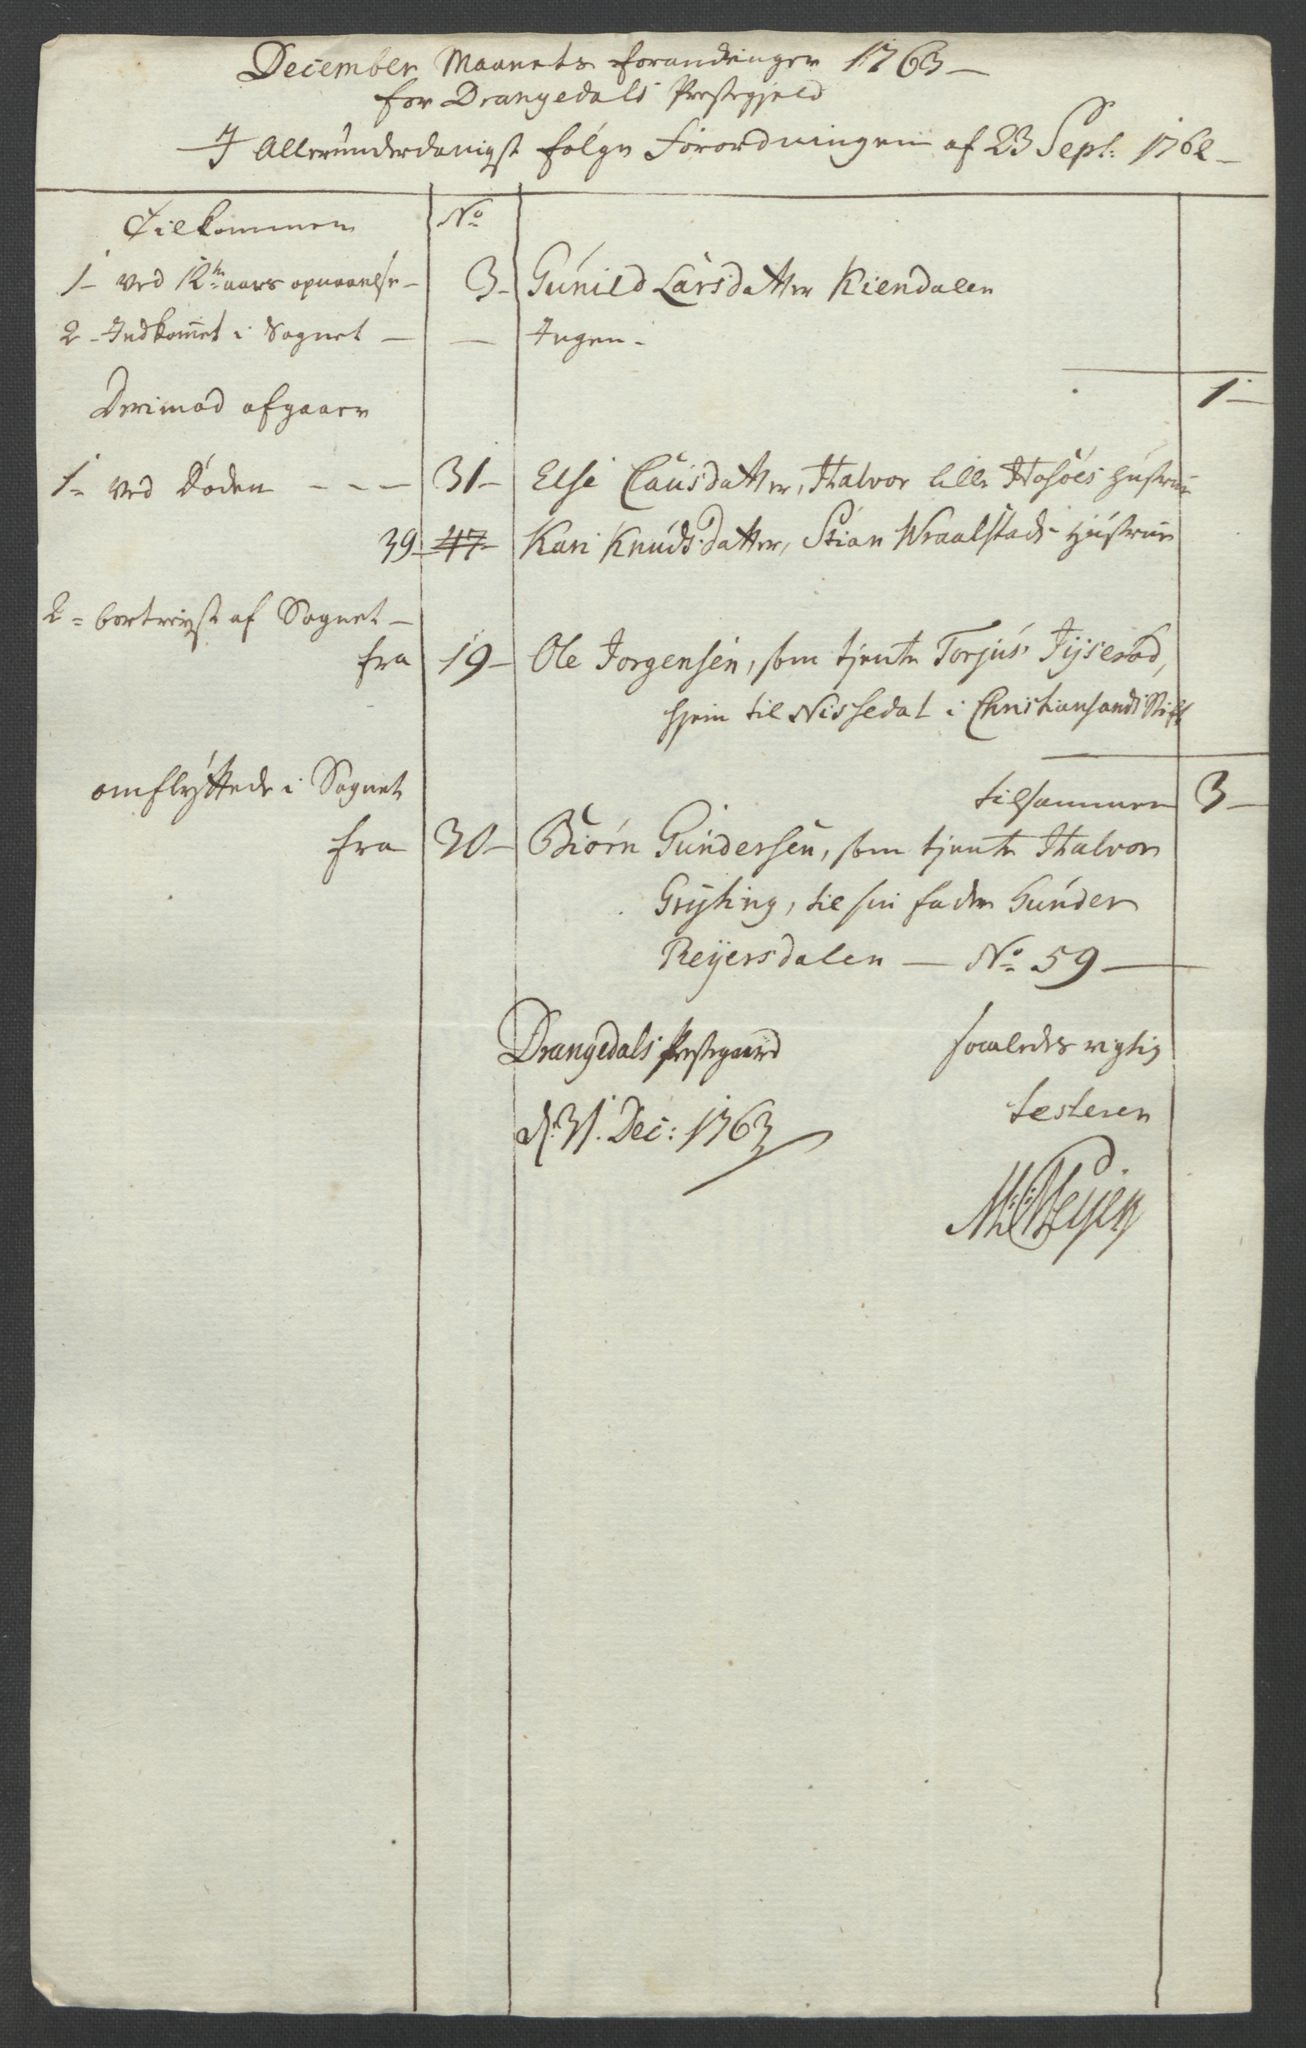 December Maanets forandringer 1763
for Drangedals Prestegjeld
I Allerunderdanigst følge Forordningen af 23 Sept: 1762
Tilkommen No
1 ved 12te aars opnaaelse 3 Gunild Larsdatter Kiendalen
2 Indkomet i Sognet Ingen
1
Derimod afgaaer
1 ved Døden 31 Else Clausdatter, Halvor lille Hustrue
39 47 Kari Knudsdatter, Stian Wraalstads Hustrue
2 bortreyst af Sognet
fra 19 Ole Jorgensen, som tjente Torjus
hjem til Nissedal i Christiansands Stift
tilsammen 3
omflyttede i Sognet
fra 30 Biørn Gundersen, som tjente Halvor
Gryting, til sin fader Gunder
Reijersdalen No 59
Drangedals Prestegaard saaledes rigtig
d. 31. Dec: 1763 testerer